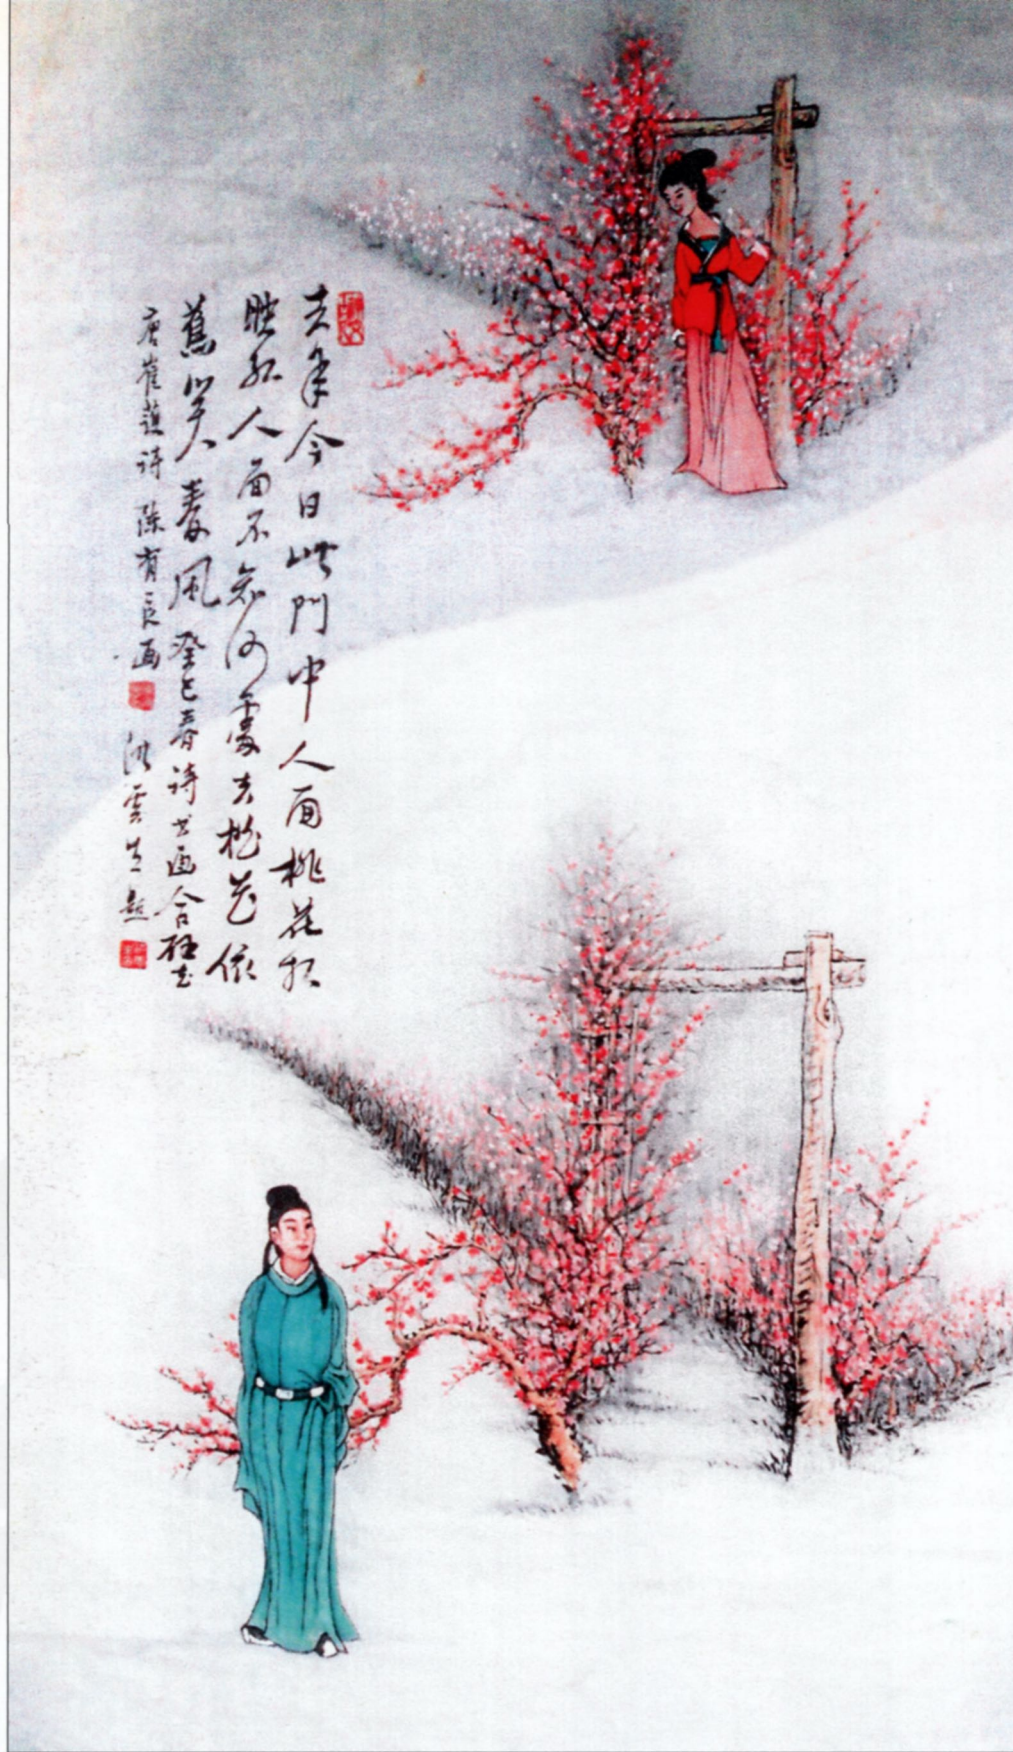 去年今日此門中人面桃花相
映红人面不知何處去桃花依
舊笑春風 癸巳春诗书画合璧
唐崔護诗 陈有良画 洪雲生题